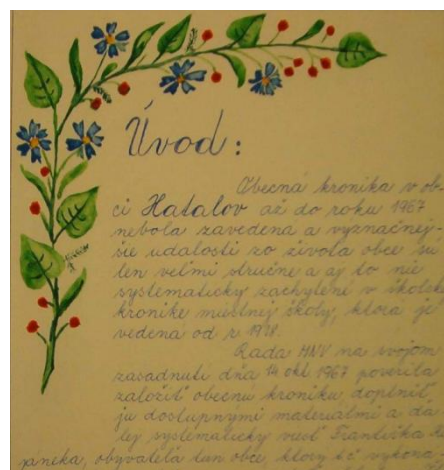 Úvod:
Obecná kronika v ob-
ci Hatalov až do roku 1967
nebola zavedena a význačnej-
šie udalosti zo života obce su
len veľmi stručne a aj to nie
systematicky zachytené v školsk
kronike miestnej školy, ktora je
vedená od r. 1918.
Rada MNV na svojom
zasadnutí dňa 14 okt 1967 poverila
založiť obecnu kroniku doplniť
ju dostupnými materialmi a da
lej systematicky viesť Františka
obyvateľa tun obce, ktorý